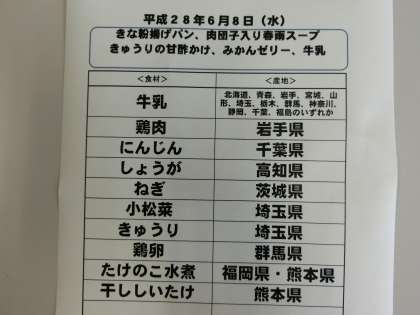 平成28年6月8日（水）
きな粉揚げパン、肉団子入り春雨スープ
きゅうりの甘酢かけ、みかんゼリー、牛乳
＜食材＞ ＜産地＞
牛乳 北海道、青森、岩手、宮城、山
形、埼玉、栃木、群馬、神奈川、
静岡、千葉、福島のいずれか
鶏肉 岩手県
にんじん 千葉県
しょうが 高知県
ねぎ 茨城県
小松菜 埼玉県
きゅうり 埼玉県
鶏卵 群馬県
たけのこ水煮 福岡県・熊本県
干ししいたけ 熊本県